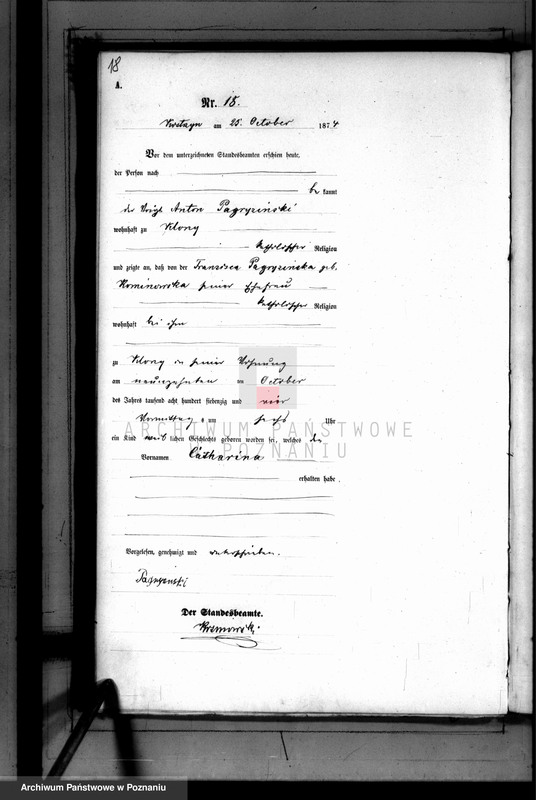 18
A.
Nr. 18.
am 25. October 1874
Vor dem unterzeichneten Standesbeamten erschien heute,
der Person nach
be kannt
der Anton Pagrzinski
wohnhaft zu
katholischer Religion
und zeigte an, daß von der Franzisca geb.
seiner Ehefrau
katholischer Religion
wohnhaft bei ihm
zu in seiner Wohnung
am neunzehnten ten October
des Jahres tausend acht hundert siebenzig und vier
Vormittag s um sechs Uhr
ein Kind weib lichen Geschlechts geboren worden sei, welches den
Vornamen Catharina
erhalten habe.
Vorgelesen, genehmigt und unterschrieben.
Der Standesbeamte.
ARCHIWUM PAŃSTWOWE
POZNANIU
Archiwum Państwowe w Poznaniu